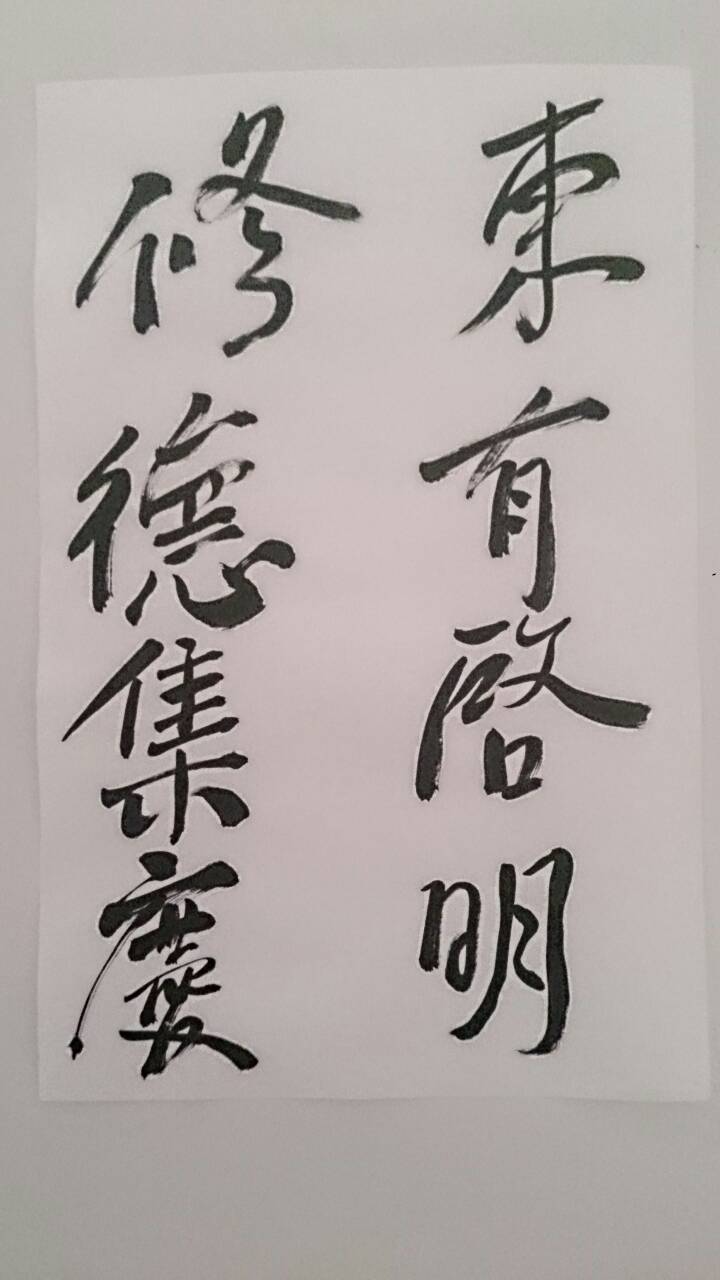 東有啓明
修德集慶